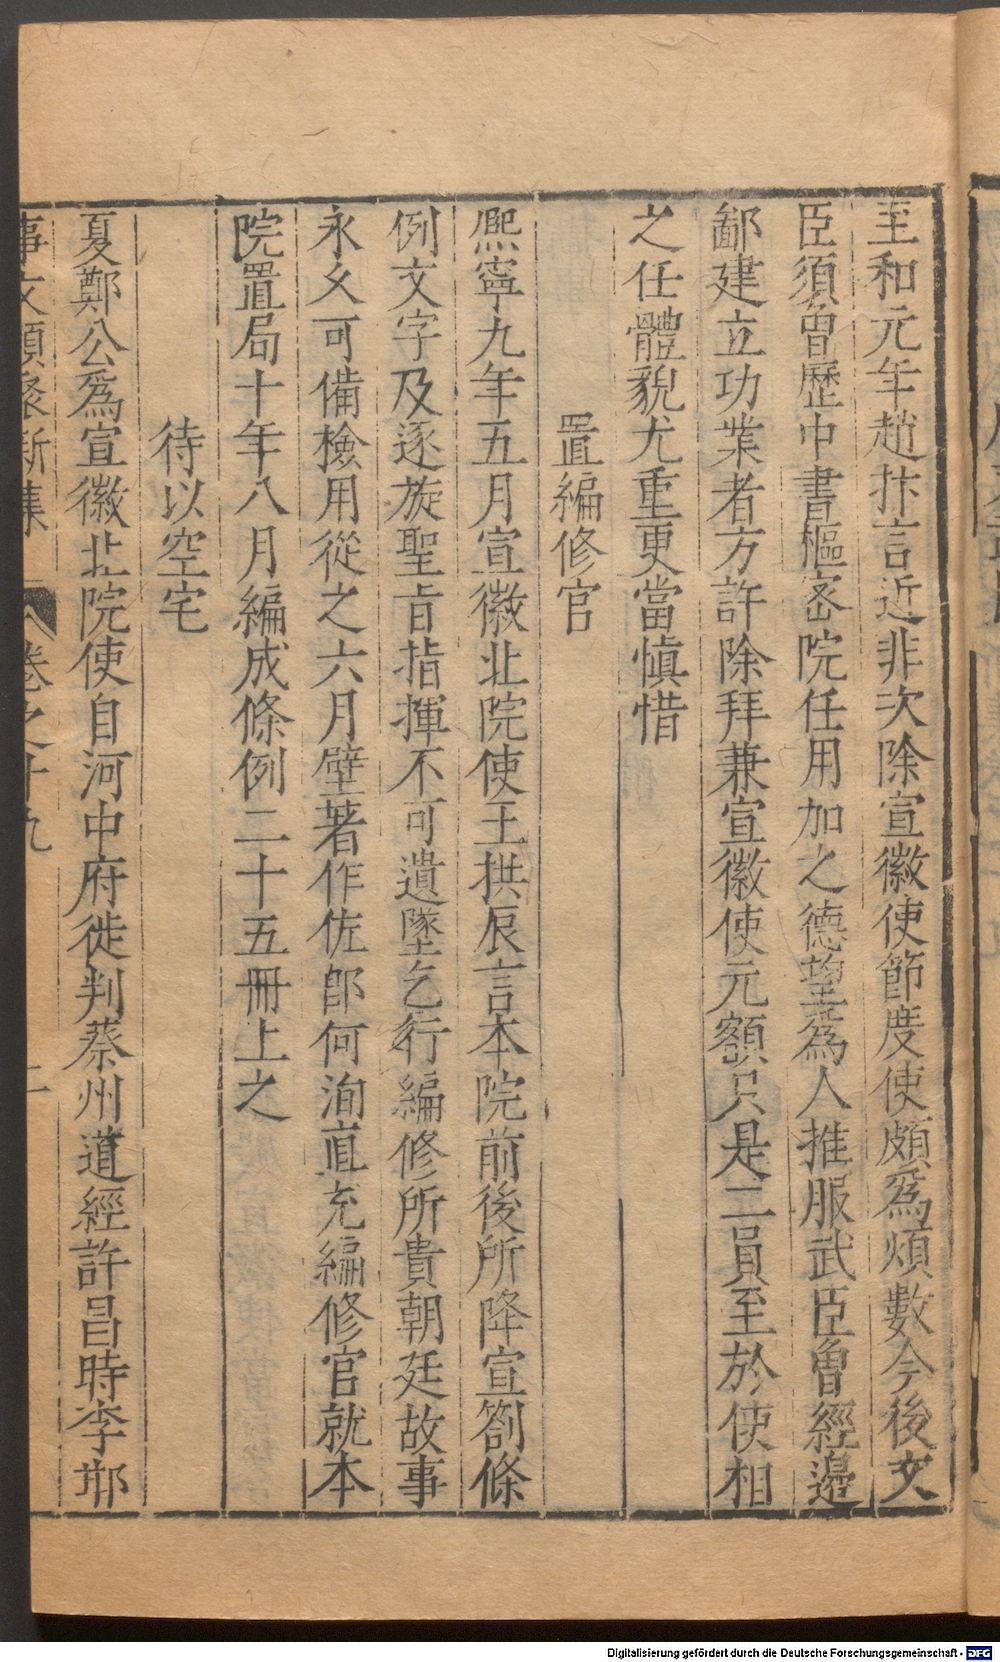 至和元年趙抃言近非次除宣徽使節度使頗爲煩數今後文
臣須曾歷中書樞宻院任用加之德望爲人推服武臣曾經邊
鄙建立功業者方許除拜兼宣徽使元額只是二員至於使相
之任體貌尤重更當愼惜
置編修官
熈寧九年五月宣徽北院使王拱辰言本院前後所降宣劄條
例文字及逐旋聖旨指揮不可遺墜乞行編修所貴朝廷故事
永乆可備檢用從之六月壁著作佐郎何洵直充編修官就本
院置局十年八月編成條例二十五冊上之
待以空宅
夏鄭公爲宣徽北院使自河中府徙判蔡州道經許昌時李邯
事文類聚新集 卷之十九 二
Digitalisierung gefördert durch die Deutsche Forschungsgemeinschaft - DFG